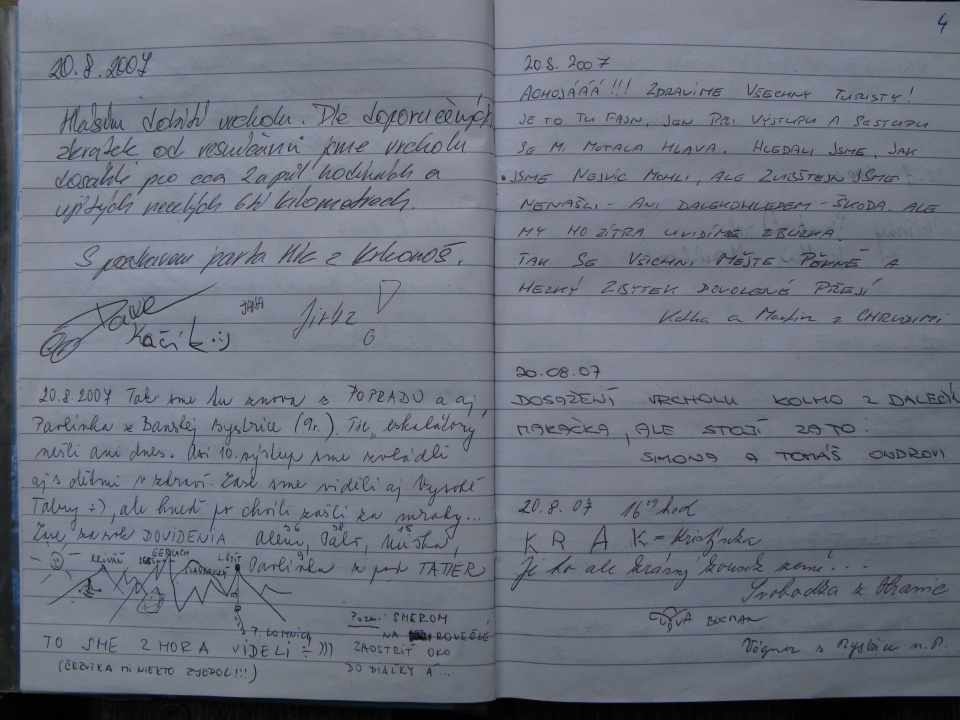 20.8.2007
Hlásím dobití vrcholu. Dle doporučených
zkratek od jsme vrcholu
dosáhli pro cca 2 a půl hodinách a
ujitých necelých 6ti kilometrech.
S pozdravem parta HK z Krkonoš.
Pavel
JANA
Jirka
Kačí :-)
20.8.2007 Tak sme tu znova z POPRADU a aj
Pavlínka z Banskej Bystrice (9r.). Tu „eskalátory
nešli ani dnes. Asi 10. výstup sme zvládli
aj s dětmi v zdraví. Zase sme viděli aj Vysoké
Tatry :-), ale hneď po chvíli zašli za mraky...
Zase za rok DOVIDENIA Alena, Paľo, Miška,
36 38 15
Pavlínka z pod TATIER
9
KRIVÁŇ GERLACH LŠTÍT
T. LOMNICA
TO SME ZHORA VIDELI :-)))
(CERUZKA MI NIEKTO ZJEDOL!!!)
Pozn: SMEROM
NA ROVEČNÉ
ZAOSTRIŤ OKO
DO DIAĽKY A ...
4
20.8.2007
ACHOJÁÁÁ!!! ZDRAVÍME VŠECHNY TURISTY!
JE TO TU FAJN, JEN PŘI VÝSTUPU A SESTUPU
SE MI MOTALA HLAVA. HLEDALI JSME, JAK
JSME NEJVÍC MOHLI, ALE ZUBŠTEJN JSME
NENAŠLI - ANI DALEKOHLEDEM - ŠKODA. ALE
MY HO ZÍTRA UVIDÍME ZBLÍZKA.
TAK SE VŠICHNI MĚJTE PĚKNĚ A
HEZKÝ ZBYTEK DOVOLENÉ PŘEJÍ
a Martin z CHRUDIMI
20.08.07
DOSAŽENÍ VRCHOLU KOLMO Z DALEČÍN
MAKAČKA, ALE STOJÍ ZA TO.
SIMONA A TOMÁŠ ONDROVI
20.8.07 16 hod
K R A K = Kristýnka
Je to ale krásný kousek země...
Svobodka z
Vágner z Bystřice n.P.